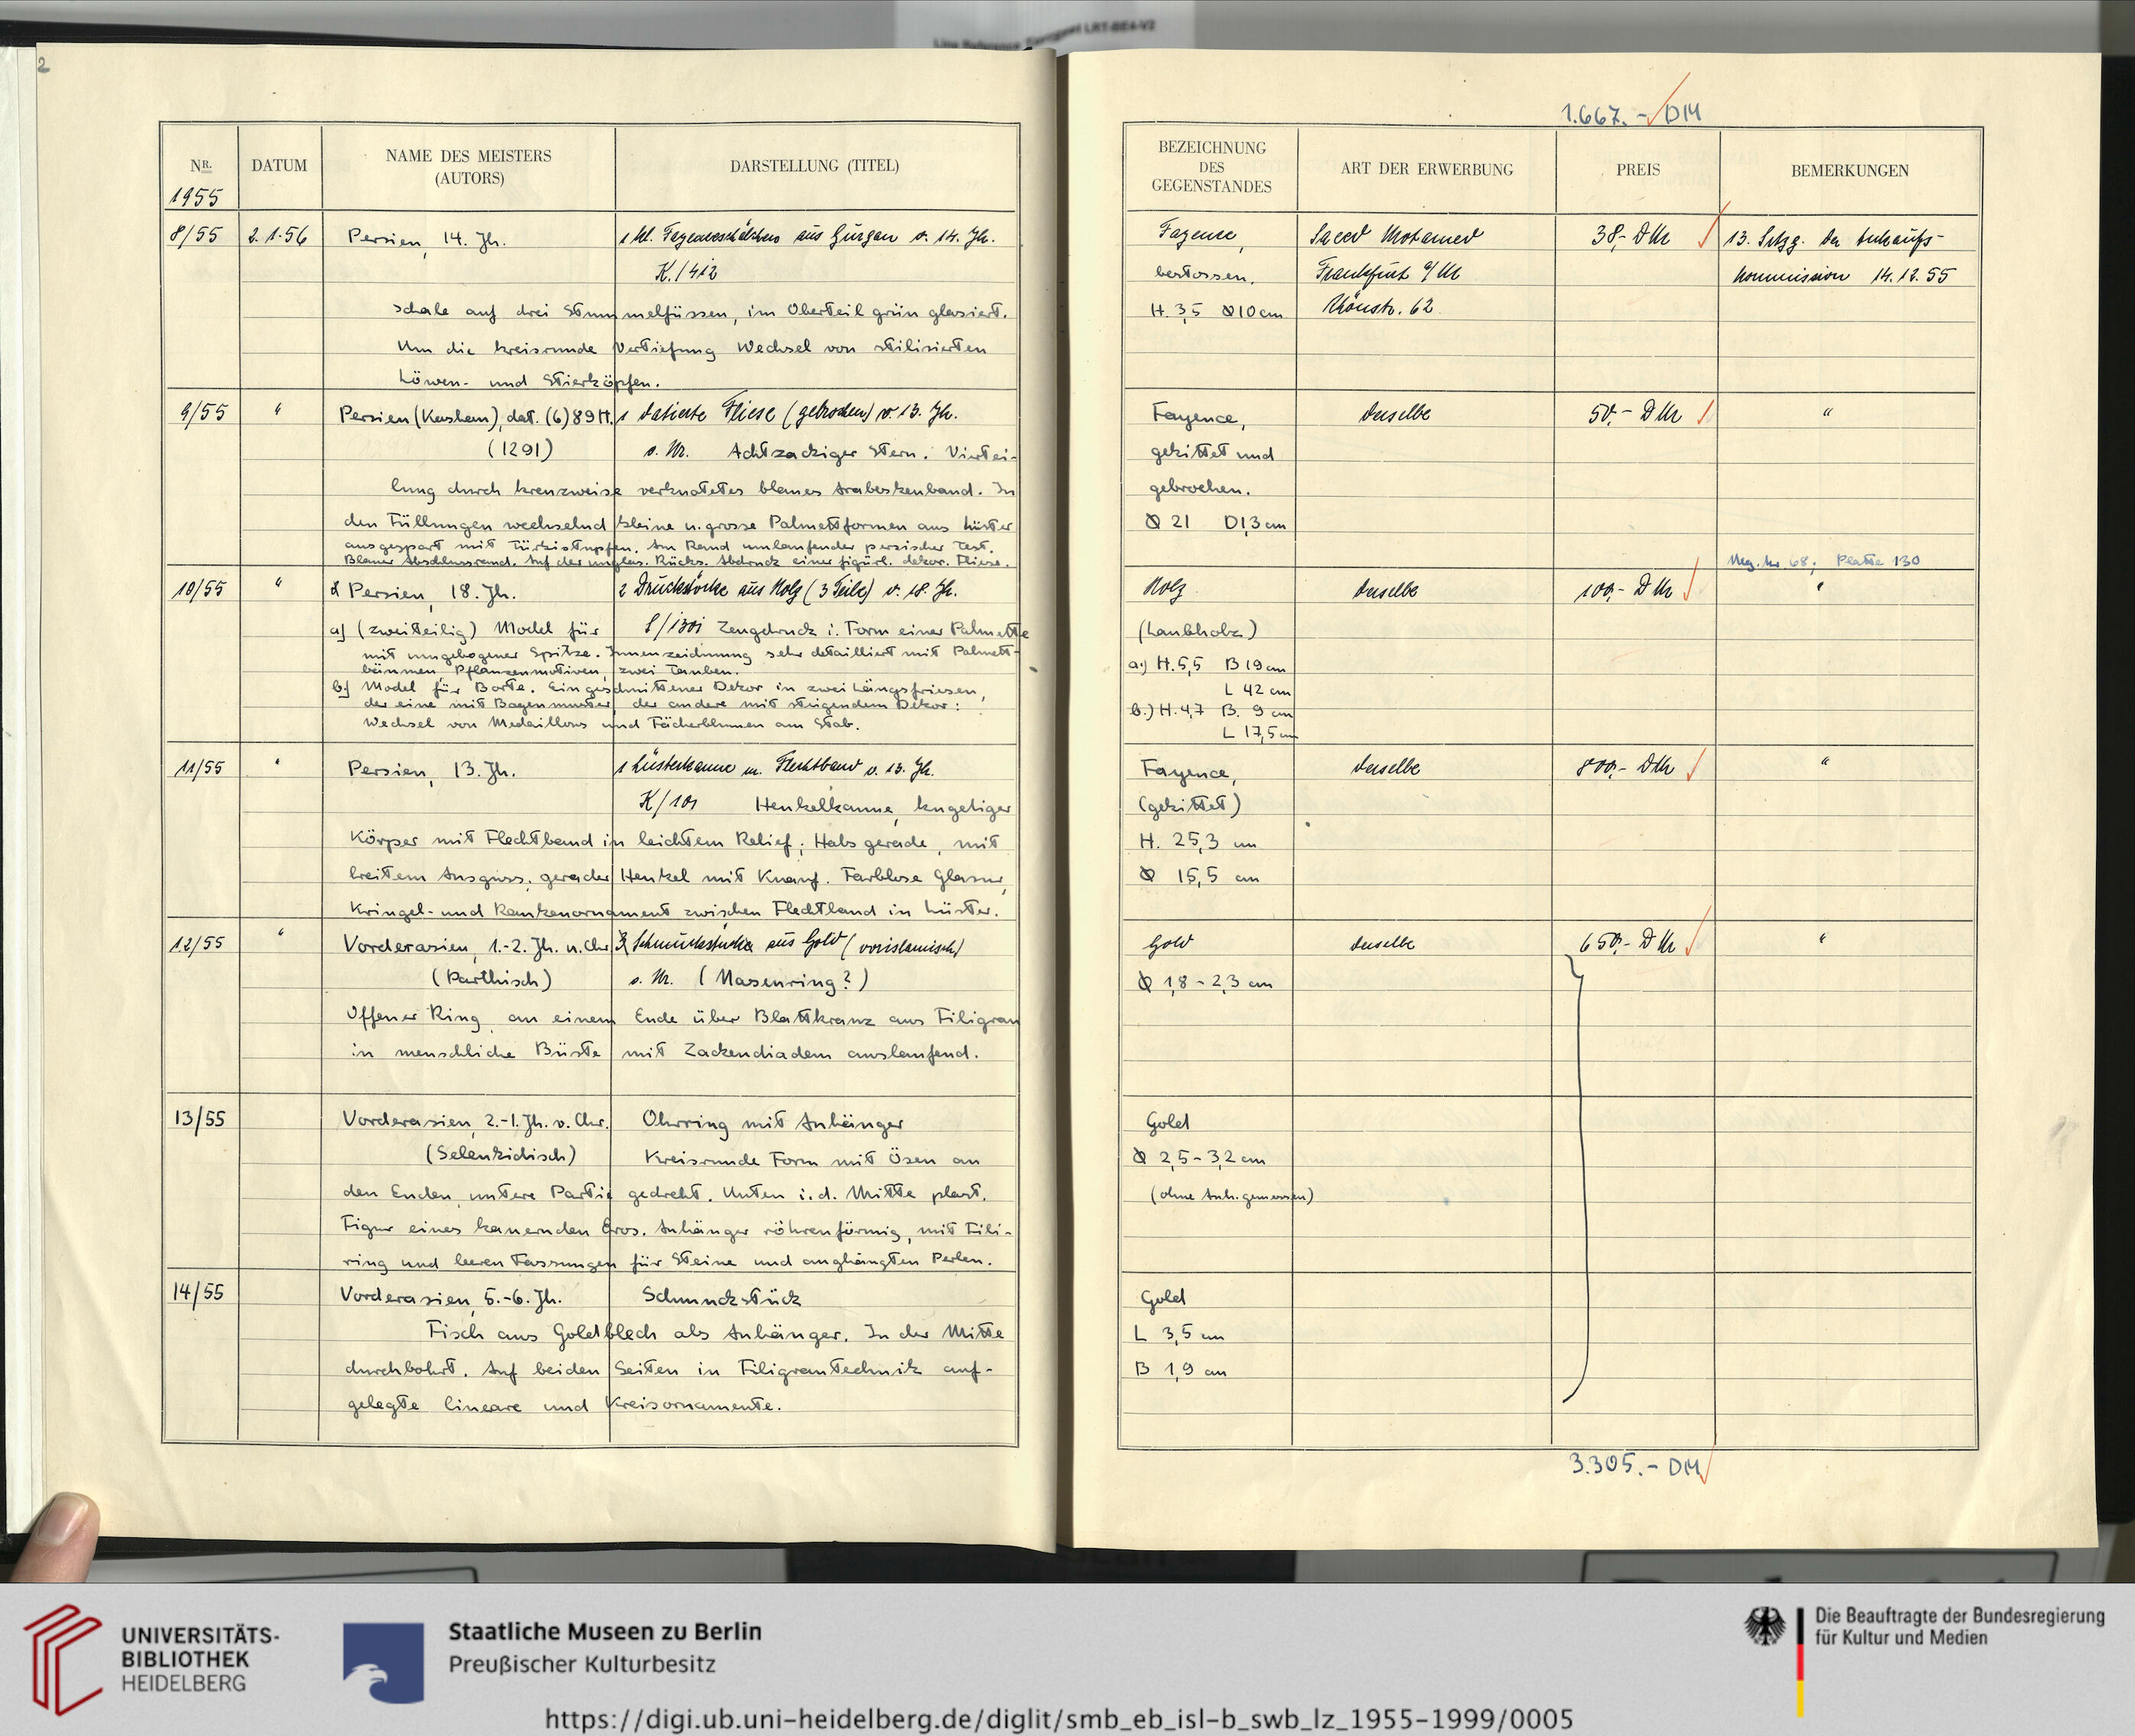 2
1.667.- DM
NR.
DATUM
NAME DES MEISTERS
(AUTORS)
DARSTELLUNG (TITEL)
BEZEICHNUNG
DES
GEGENSTANDES
ART DER ERWERBUNG
PREIS
BEMERKUNGEN
1955
8/55 2.1.56 Persien, 14. Jh. 1 kl. Fayenceschälchen aus Gurgan v. 14. Jh.
K. / 412
Schale auf drei Stummelfüssen, im Oberteil grün glasiert.
Um die kreisrunde Vertiefung Wechsel von stilisierten
Löwen- und Stierköpfen.
Fayence,
bestossen.
H. 3,5 Ø 10 cm
Saeed Motamed
Frankfurt a/M
Rhönstr. 62
38,- DM
13. Sitzg. der Ankaufs-
kommission 14.12.55
9/55 " Persien (Kashan), dat. (6)89 H. 1 datierte Fliese (gebrochen) v. 13. Jh.
(1291) o. Nr. Achtzackiger Stern. Viertei-
lung durch kreuzweise verknotetes blaues Arabeskenband. In
den Füllungen wechselnd kleine u. grosse Palmettformen aus Lüster
ausgespart mit Türkistupfen. Am Rand umlaufender persischer Text.
Blauer Abschlussrand. Auf der unglas. Rücks. Abdruck einer figürl. dekor. Fliese.
Fayence,
gekittet und
gebrochen.
Ø 21 D 1,3 cm
derselbe
50.- DM
"
Neg. Nr 68; Platte 130
10/55 " 2 Persien, 18. Jh. 2 Druckstöcke aus Holz (3 Teile) v. 18. Jh.
a) (zweiteilig) Model für I/1301 Zeugdruck i. Form einer Palmette
mit umgebogener Spitze. Innenzeichnung sehr detailliert mit Palmett-
bäumen, Pflanzenmotiven, zwei Tauben.
b) Model für Borte. Eingeschnittener Dekor in zwei Längsfriesen,
der eine mit Bogenmuster, der andere mit steigendem Dekor:
Wechsel von Medaillons und Fächerblumen am Stab.
Holz
(Laubholz)
a.) H. 5,5 B 19 cm
L 42 cm
b.) H. 4,7 B. 9 cm
L 17,5 cm
derselbe
100,- DM
"
11/55 " Persien, 13. Jh. 1 Lüsterkanne m. Flechtband v. 13. Jh.
K/101 Henkelkanne, kugeliger
Körper mit Flechtband in leichtem Relief; Hals gerade, mit
breitem Ausguss, gerader Henkel mit Knauf. Farblose Glasur,
Kringel- und Rankenornament zwischen Flechtband in Lüster.
Fayence,
(gekittet)
H. 25,3 cm
Ø 15,5 cm
derselbe
800,- DM
"
12/55 " Vorderasien, 1.-2. Jh. n. Chr. 3 Schmuckstücke aus Gold (vorislamisch)
(Parthisch) o. Nr. (Nasenring?)
Offener Ring, an einem Ende über Blattkranz aus Filigran
in menschliche Büste mit Zackendiadem auslaufend.
Gold
Ø 1,8 - 2,3 cm
derselbe
650,- DM
"
13/55 Vorderasien, 2.-1. Jh. v. Chr. Ohrring mit Anhänger
(Seleukidisch) Kreisrunde Form mit Ösen an
den Enden, untere Partie gedreht. Unten i. d. Mitte plast.
Figur eines kauernden Eros. Anhänger röhrenförmig, mit Fili-
ring und leeren Fassungen für Steine und anghängten Perlen.
Gold
Ø 2,5 - 3,2 cm
(ohne Anh. gemessen)
14/55 Vorderasien, 5.-6. Jh. Schmuckstück
Fisch aus Goldblech als Anhänger. In der Mitte
durchbohrt. Auf beiden Seiten in Filigrantechnik auf-
gelegte lineare und Kreisornamente.
Gold
L 3,5 cm
B 1,9 cm
3.305.- DM
UNIVERSITÄTS-
BIBLIOTHEK
HEIDELBERG
Staatliche Museen zu Berlin
Preußischer Kulturbesitz
Die Beauftragte der Bundesregierung
für Kultur und Medien
https://digi.ub.uni-heidelberg.de/diglit/smb_eb_isl-b_swb_lz_1955-1999/0005